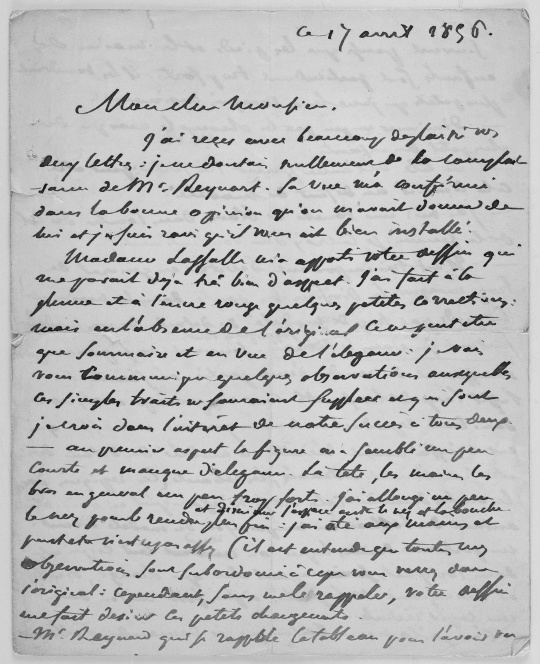 ce 17 avril 1856.
Mon cher Monsieur,
J'ai reçu avec beaucoup de plaisir vos
deux lettres : je ne doutais nullement de la complai
sance de Mr Reynart. Sa vue m'a confirmé
dans la bonne opinion qu'on m'avait donné de
lui et je suis ravi qu'il vous ait bien installé.
Madame Laffalle m'a apporté votre dessin qui
me parait déja très bien d'aspect. J'ai fait à la
plume et à l'encre rouge quelques petites corrections :
mais en l'absence de l'original ce ne peut etre
que sommaire et en vue de l'élegance : je vais
vous communiquer quelques observations auxquelles
ces simples traits ne sauraient suppléer et qui sont
je crois dans l'intéret de notre succès à tous deux.
— au premier aspect la figure m'a semblé un peu
courte et manque d'elegance. La tete, les mains les
bras en general un peu trop forts. J'ai allongé un peu
et diminué l'espace entre le nez et la bouche
le nez pour le rendre plus fin : j'ai oté aux mains et
peutetre n'est ce pas assez (il est entendu que toutes mes
observations sont subordonnées à ce que vous verrez dans
l'original : cependant, sans me le rappeler, votre dessin
me fait désirer ces petits changements.
— Mr Reynard qui se rappelle le tableau pour l'avoir vu